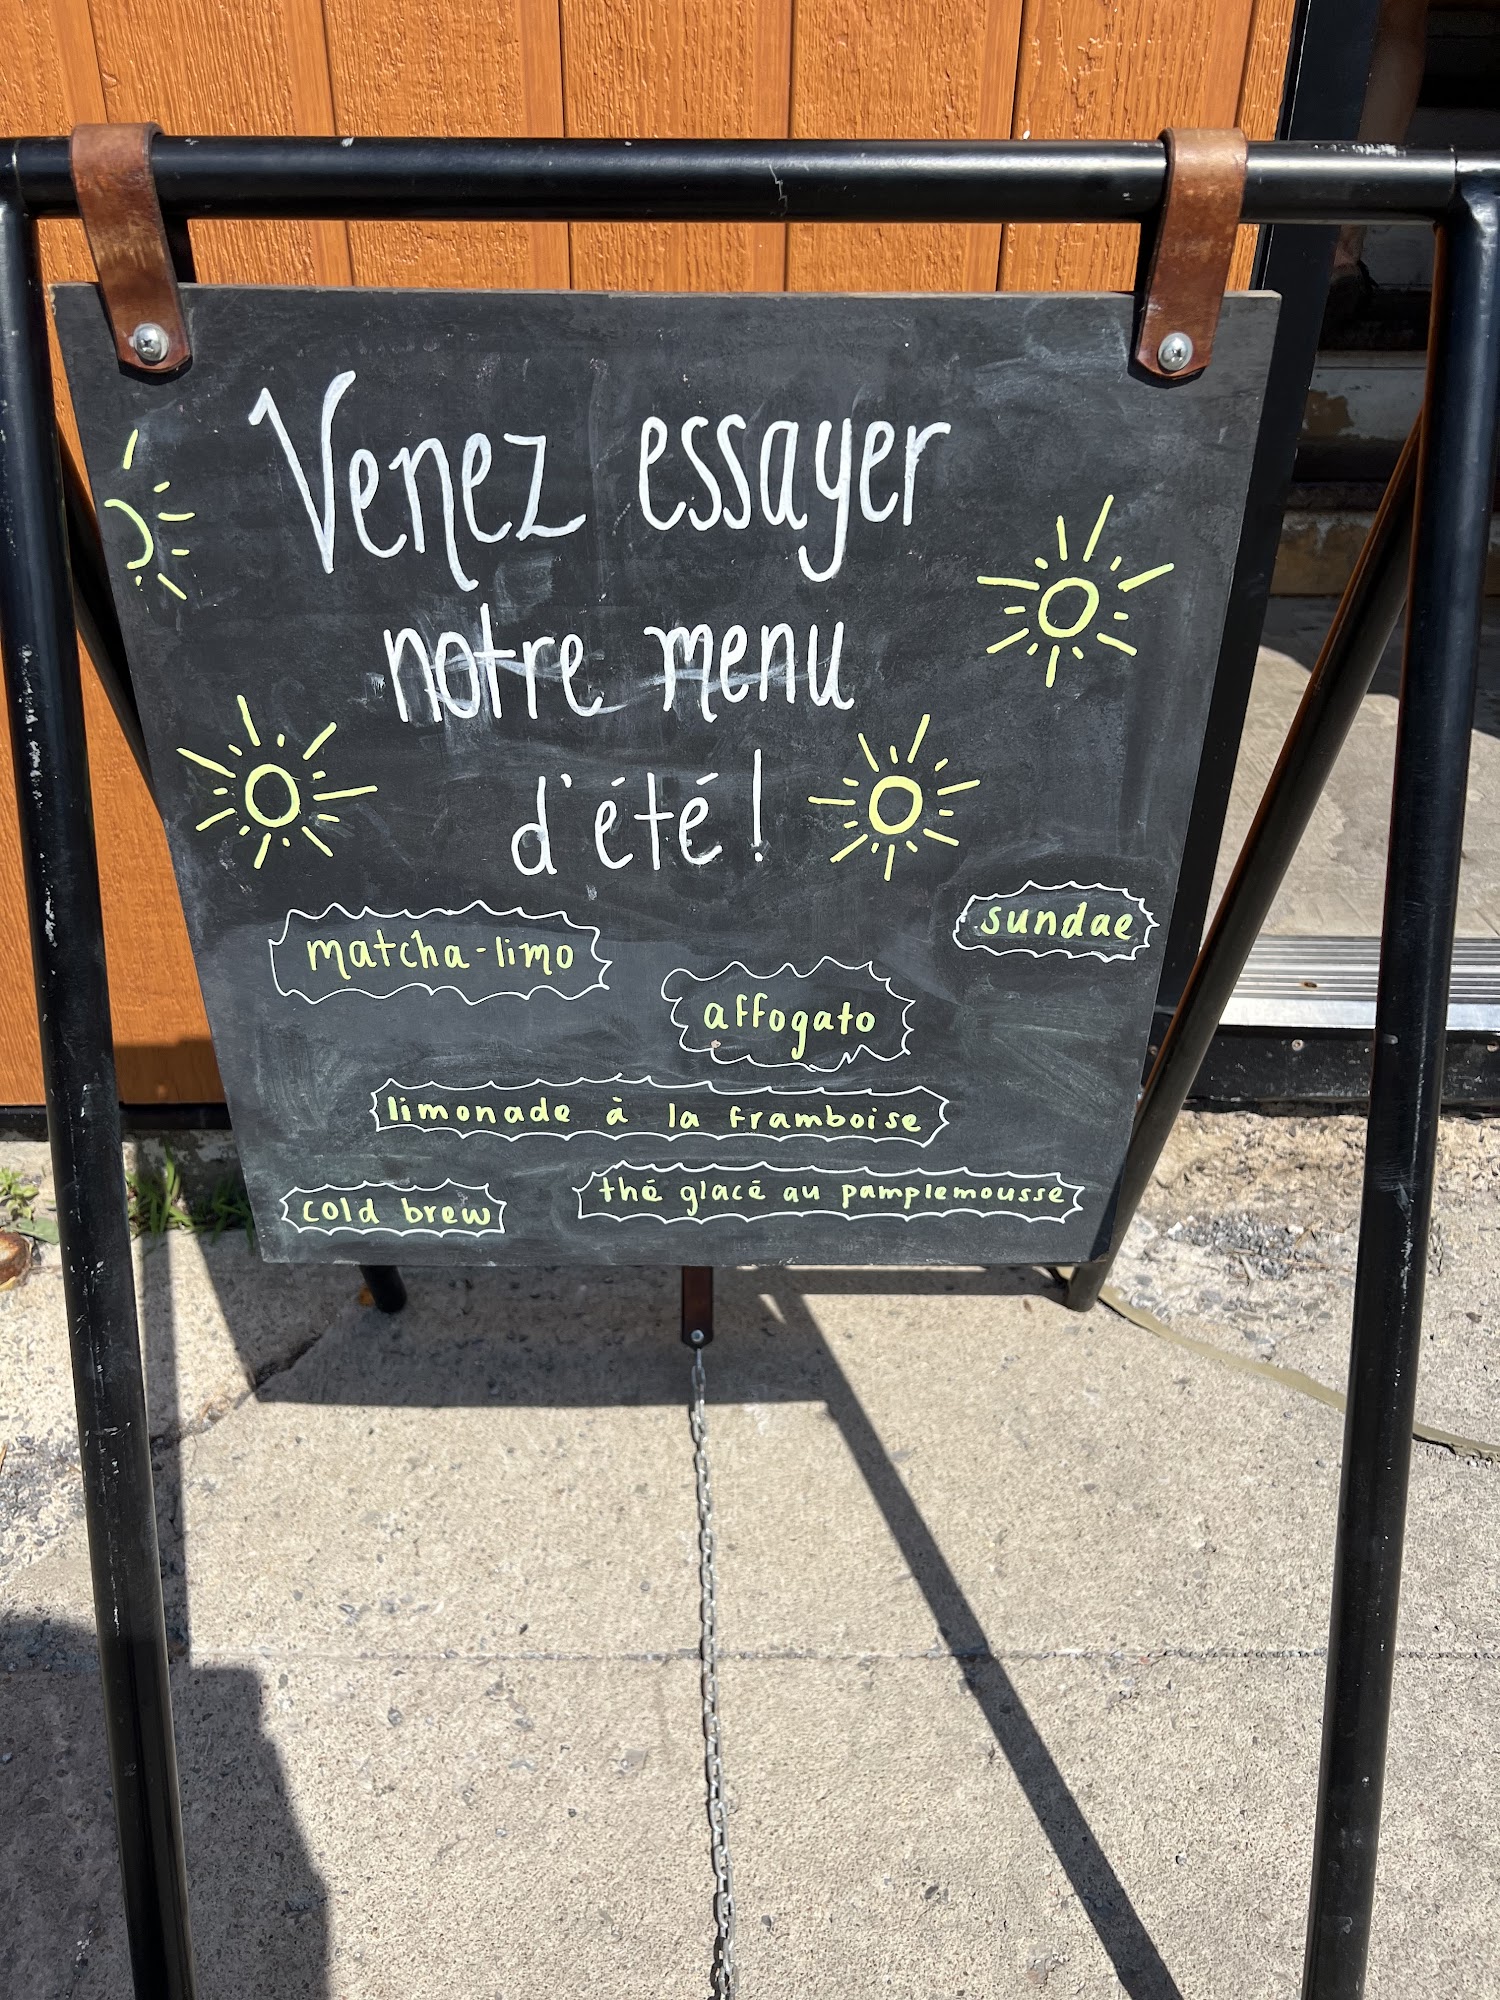 Venez essayer
notre menu
d'été!
matcha-limo
sundae
affogato
limonade à la framboise
cold brew
thé glacé au pamplemousse